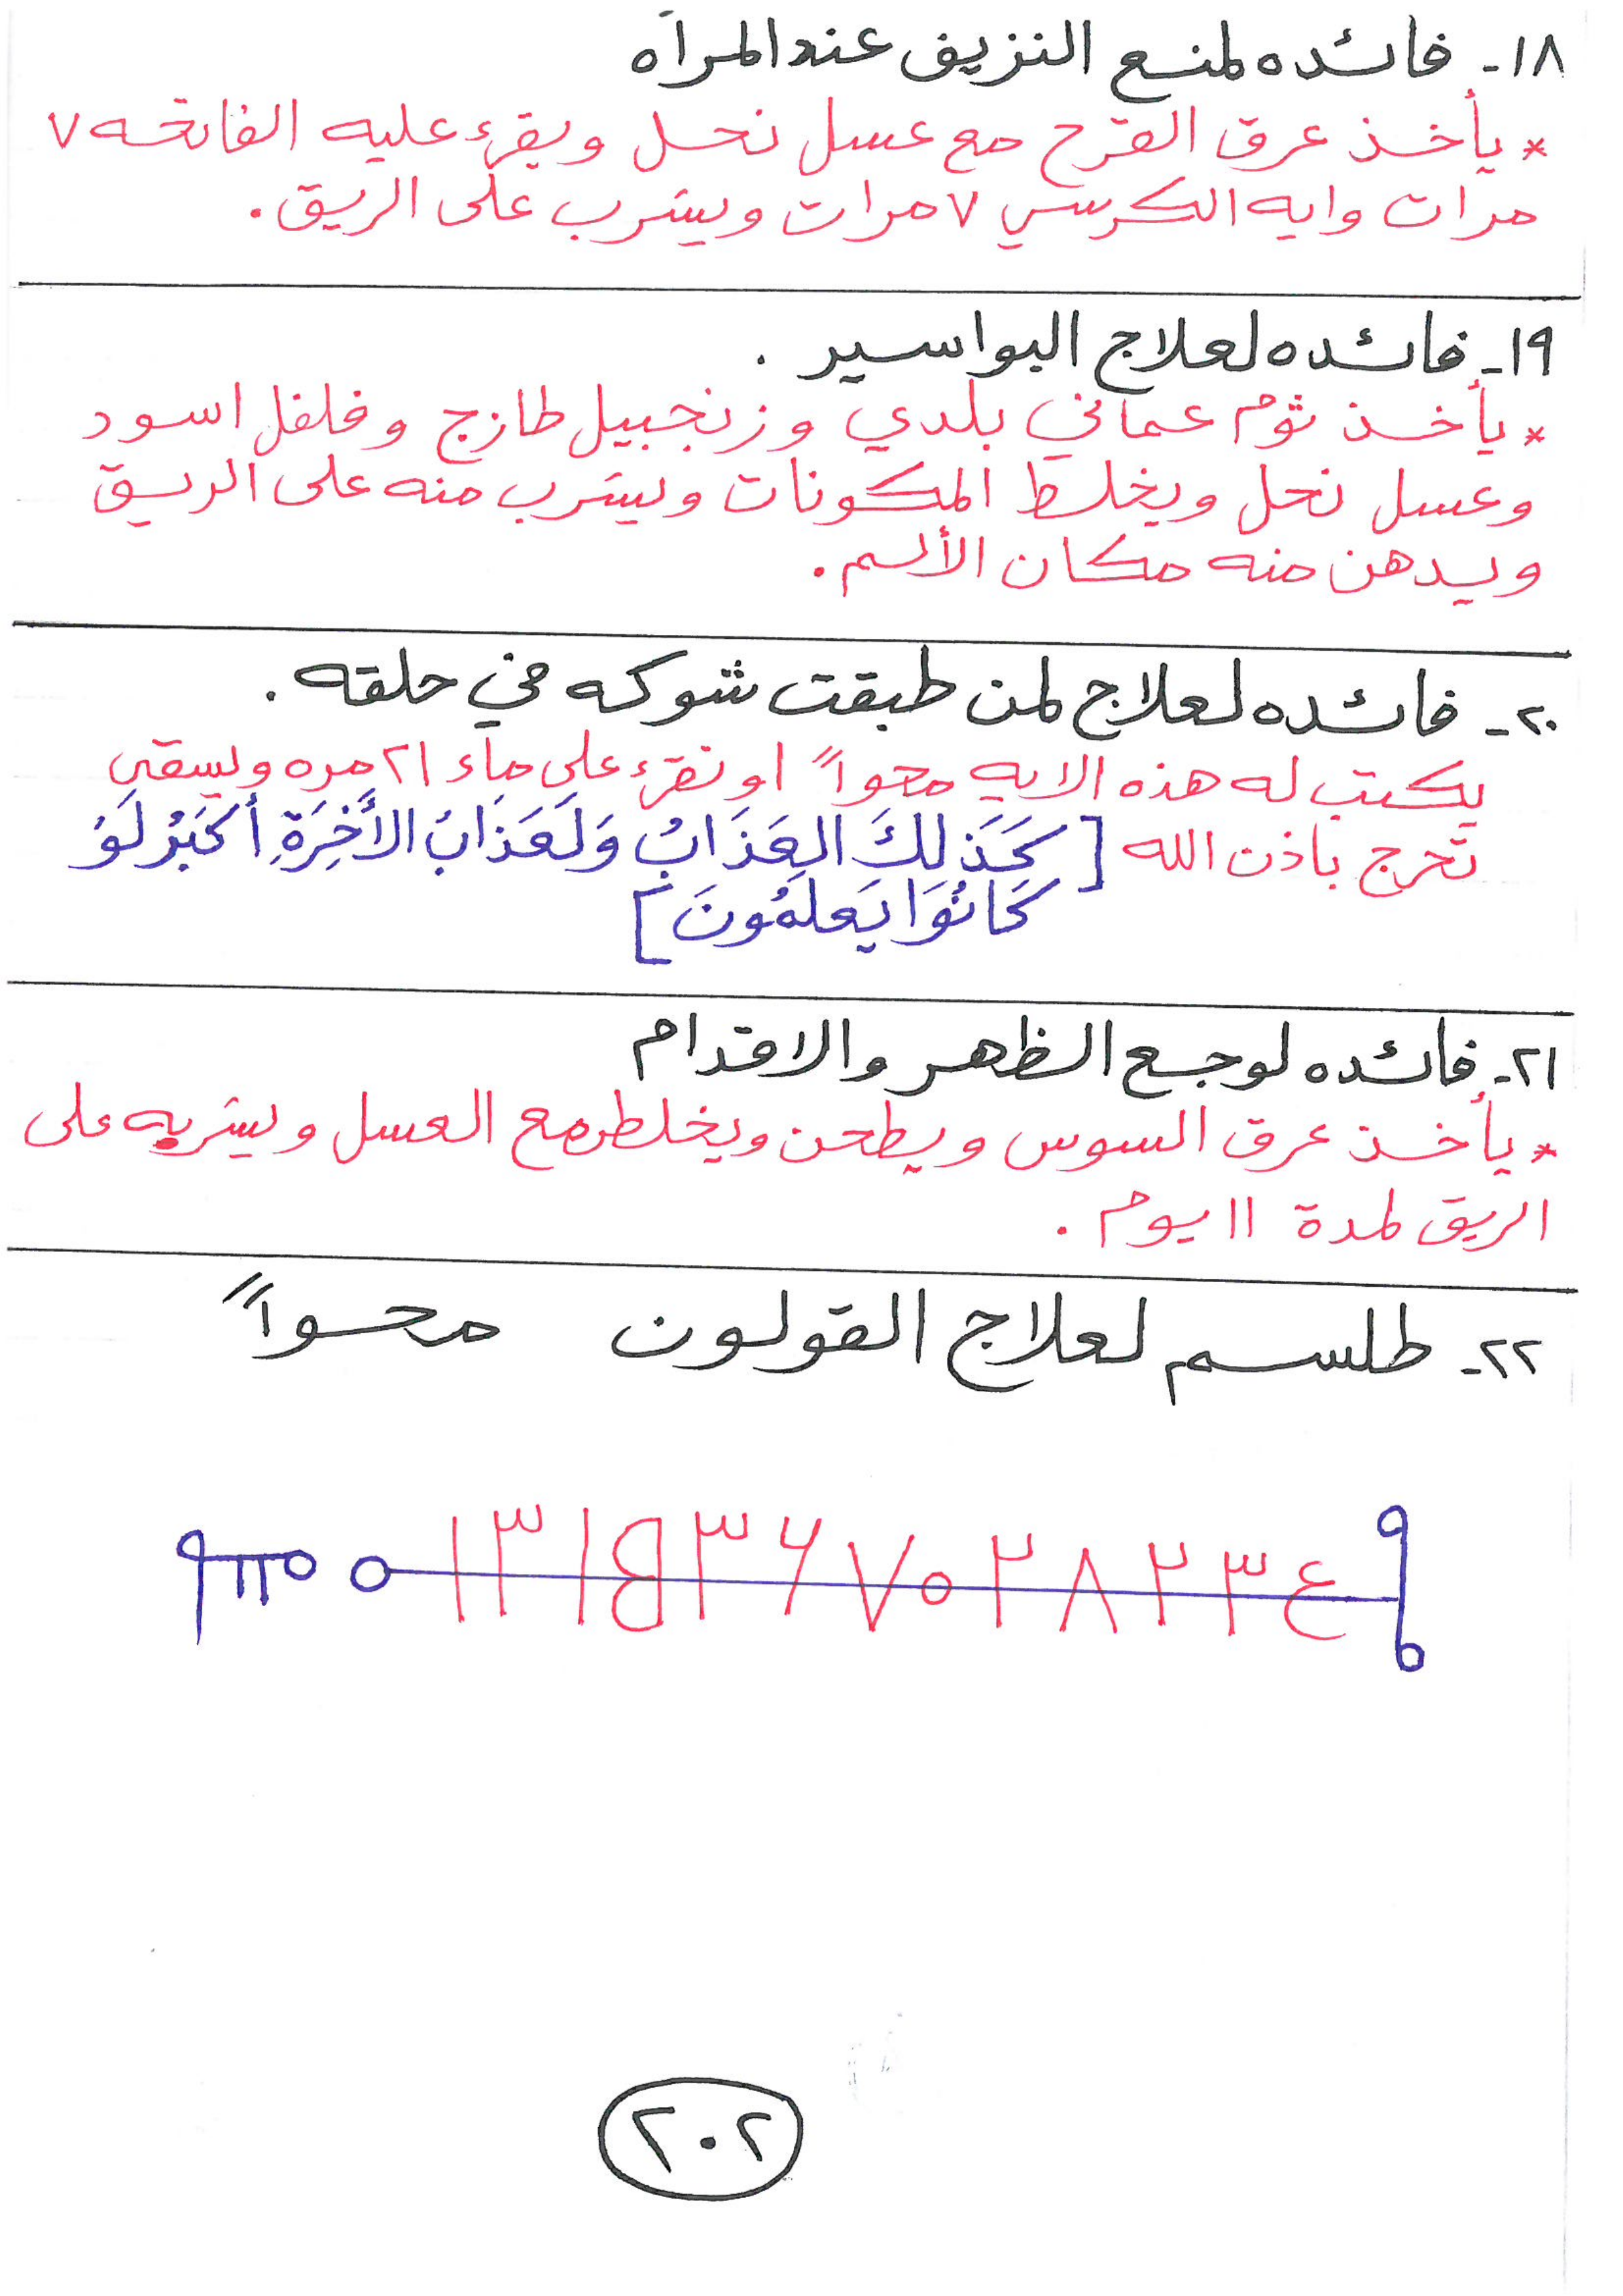 ١٨- فائده لمنع النزيف عند المرآه
* يأخذ عرق القرح مع عسل نحل ويقرء عليه الفاتحه ٧
مرات وايه الكرسي ٧ مرات ويشرب على الريق.
١٩- فائده لعلاج البواسير .
* يأخذ ثوم عماني بلدي وزنجبيل طازج وفلفل اسود
وعسل نحل ويخلط المكونات ويشرب منه على الريق
ويدهن منه مكان الألم.
٢٠- فائده لعلاج لمن طبقت شوكه في حلقه .
يكتب له هذه الايه محواً او نقرء على ماء ٢١ مره ويسقى
تخرج باذن الله [كَذَلِكَ العَذَابُ وَلَعَذَابُ الأَخِرَةِ أَكبَرُ لَوْ
كَانُوَا يَعلَمُونَ]
٢١- فائده لوجع الظهر والاقدام
* يأخذ عرق السوس ويطحن ويخلط مع العسل ويشربه على
الريق لمدة ١١ يوم .
٢٢- طلسم لعلاج القولون محواً
٢٠٢